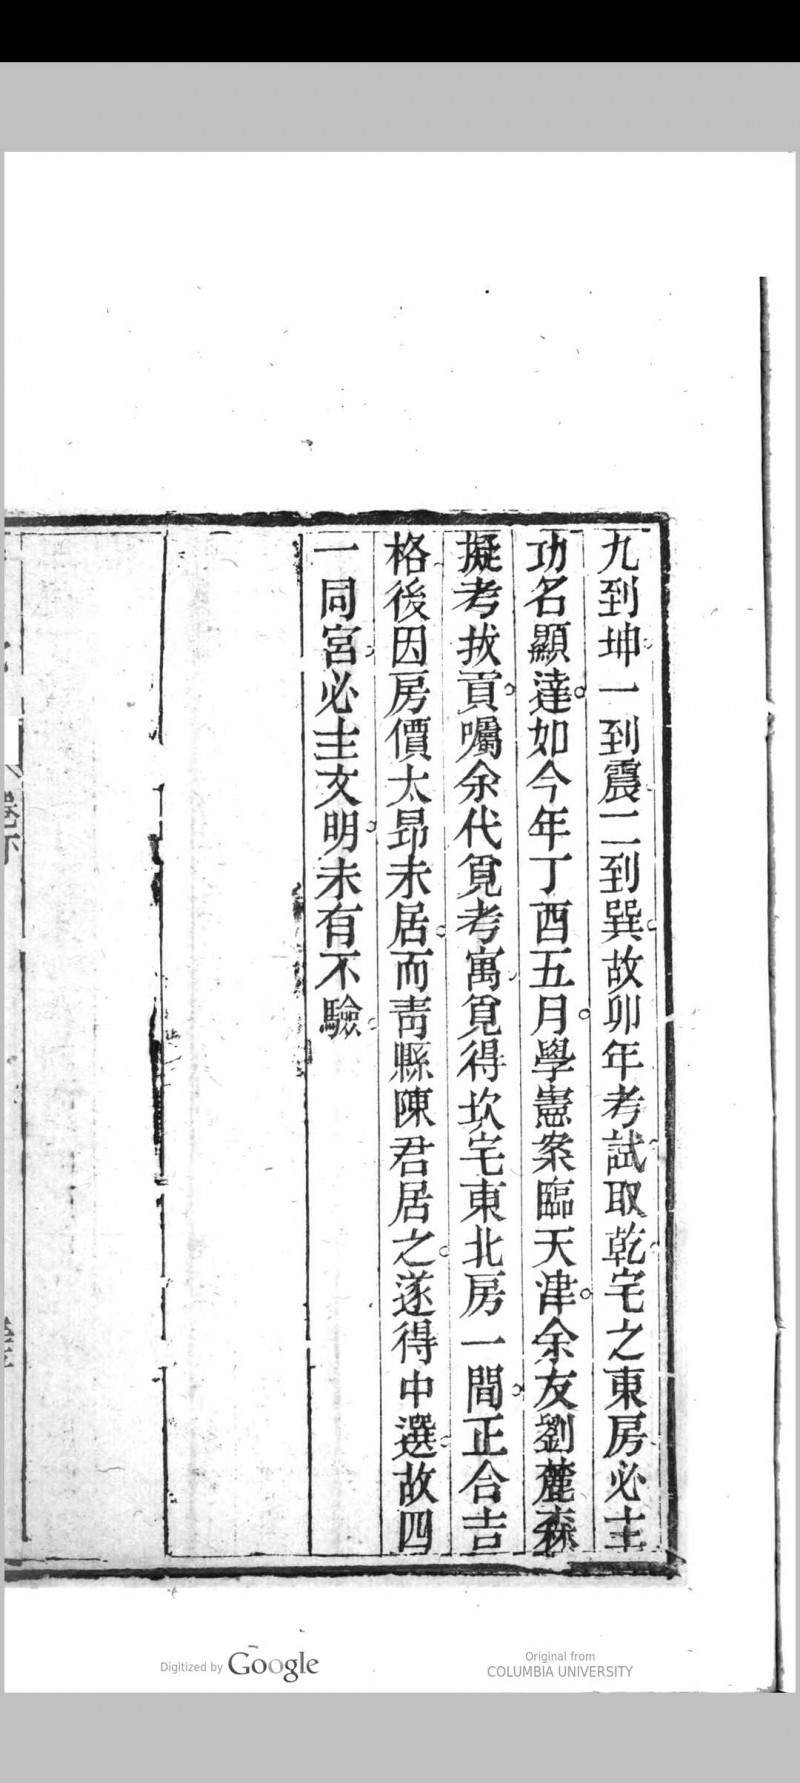 九到坤一到震二到巽故卯年考試取乾宅之東房必主
功名顯達如今年丁酉五月學憲案臨天津余友劉麓森
擬考拔貢囑余代覓考寓覓得坎宅東北房一間正合吉
格後因房價太昂未居而青縣陳君居之遂得中選故四
一同宮必主文明未有不驗
卷下
Digitized by Google
Original from
COLUMBIA UNIVERSITY